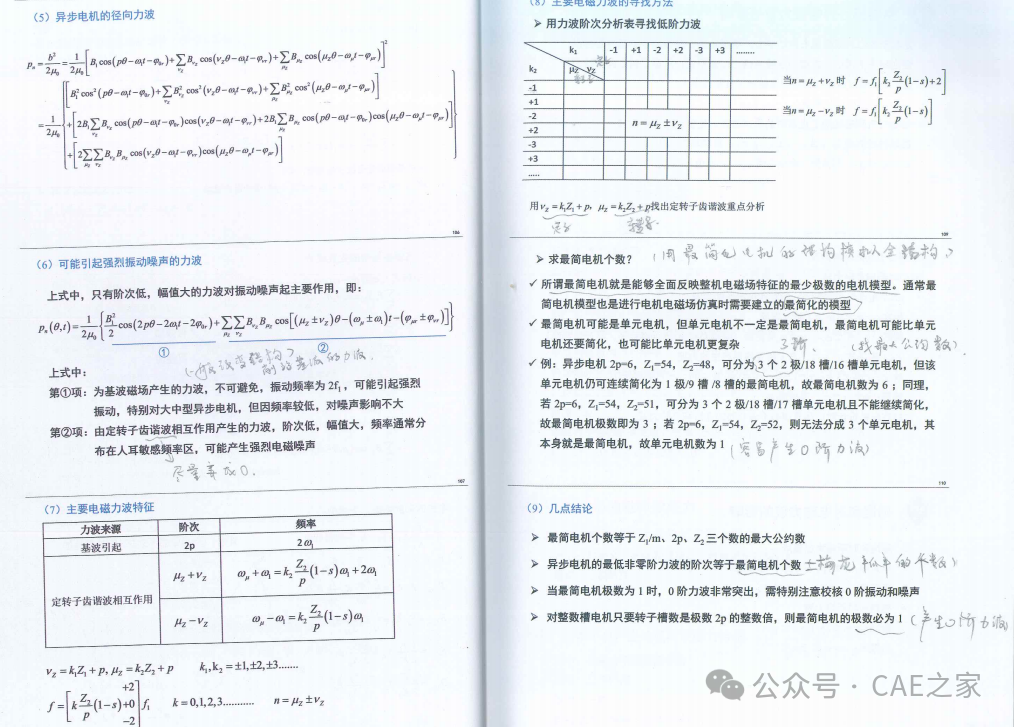 （5）异步电机的径向力波
p_n = b²/2μ₀ = 1/2μ₀ [B₁cos(pθ−ω₁t−φ₀ᵣ)+∑B_{ν_Z}cos(ν_Zθ−ω₁t−φ_{νr})+∑B_{μ_Z}cos(μ_Zθ−ω_μt−φ_{μr})]²
= 1/2μ₀ { [B₁²cos²(pθ−ω₁t−φ₀ᵣ)+∑B²_{ν_Z}cos²(ν_Zθ−ω₁t−φ_{νr})+∑B²_{μ_Z}cos²(μ_Zθ−ω_μt−φ_{μr})]
+[2B₁∑B_{ν_Z}cos(pθ−ω₁t−φ₀ᵣ)cos(ν_Zθ−ω₁t−φ_{νr})+2B₁∑B_{μ_Z}cos(pθ−ω₁t−φ₀ᵣ)cos(μ_Zθ−ω_μt−φ_{μr})]
+[2∑∑B_{ν_Z}B_{μ_Z}cos(ν_Zθ−ω₁t−φ_{νr})cos(μ_Zθ−ω_μt−φ_{μr})] }
106
（6）可能引起强烈振动噪声的力波
上式中，只有阶次低，幅值大的力波对振动噪声起主要作用，即：
p_n(θ,t) = 1/2μ₀ { B₁²/2 cos(2pθ−2ω₁t−2φ₀ᵣ)+∑∑B_{ν_Z}B_{μ_Z}cos[(μ_Z±ν_Z)θ−(ω_μ±ω₁)t−(φ_{μr}±φ_{νr})] }
① ②
上式中：
第①项：为基波磁场产生的力波，不可避免，振动频率为2f₁，可能引起强烈
振动，特别对大中型异步电机，但因频率较低，对噪声影响不大
第②项：由定转子齿谐波相互作用产生的力波，阶次低，幅值大，频率通常分
布在人耳敏感频率区，可能产生强烈电磁噪声
107
（7）主要电磁力波特征
力波来源 阶次 频率
基波引起 2p 2ω₁
定转子齿谐波相互作用
μ_Z+ν_Z ω_μ+ω₁=k₂ Z₂/p (1−s)ω₁+2ω₁
μ_Z−ν_Z ω_μ−ω₁=k₂ Z₂/p (1−s)ω₁
ν_Z=k₁Z₁+p, μ_Z=k₂Z₂+p k₁,k₂=±1,±2,±3.......
f=[k Z₂/p (1−s) +2 +0 −2] f₁ k=0,1,2,3........... n=μ_Z±ν_Z
（8）主要电磁力波的寻找方法
➢ 用力波阶次分析表寻找低阶力波
k₁ -1 +1 -2 +2 -3 +3 ........
k₂ μ_Z ν_Z
-1
+1
-2
+2
-3
+3
.....
n=μ_Z±ν_Z
当n=μ_Z+ν_Z时 f=f₁[k₂ Z₂/p (1−s)+2]
当n=μ_Z−ν_Z时 f=f₁[k₂ Z₂/p (1−s)]
用ν_Z=k₁Z₁+p，μ_Z=k₂Z₂+p找出定转子齿谐波重点分析
定子 转子
109
➢ 求最简电机个数？
✓ 所谓最简电机就是能够全面反映整机电磁场特征的最少极数的电机模型。通常最
简电机模型也是进行电机电磁场仿真时需要建立的最简化的模型
✓ 最简电机可能是单元电机，但单元电机不一定是最简电机，最简电机可能比单元
电机还要简化，也可能比单元电机更复杂
（找最大公约数）
✓ 例：异步电机 2p=6，Z₁=54，Z₂=48，可分为3 个 2 极/18 槽/16 槽单元电机，但该
单元电机仍可连续简化为 1 极/9 槽 /8 槽的最简电机，故最简电机数为 6；同理，
若 2p=6，Z₁=54，Z₂=51，可分为 3 个 2 极/18 槽/17 槽单元电机且不能继续简化，
故最简电机极数即为 3；若 2p=6，Z₁=54，Z₂=52，则无法分成 3 个单元电机，其
本身就是最简电机，故单元电机数为 1
（容易产生0阶力波）
110
（9）几点结论
➢ 最简电机个数等于 Z₁/m、2p、Z₂ 三个数的最大公约数
➢ 异步电机的最低非零阶力波的阶次等于最简电机个数
➢ 当最简电机极数为 1 时，0 阶力波非常突出，需特别注意校核 0 阶振动和噪声
➢ 对整数槽电机只要转子槽数是极数 2p 的整数倍，则最简电机的极数必为 1
（产生0阶力波）
公众号 · CAE之家